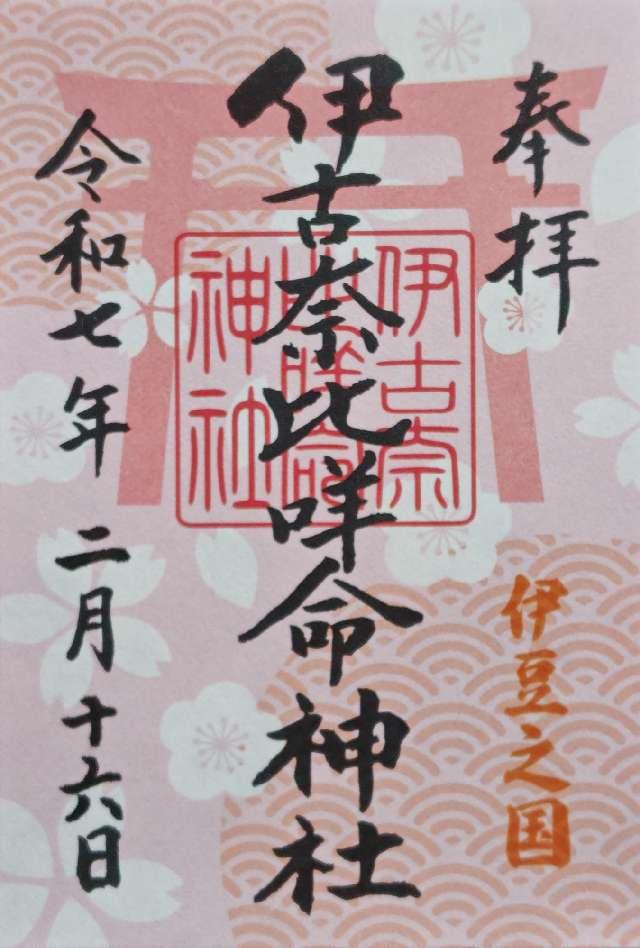 奉拝
伊豆之国
伊古奈比咩命神社
伊古奈
比咩命
神社
令和七年 二月十六日